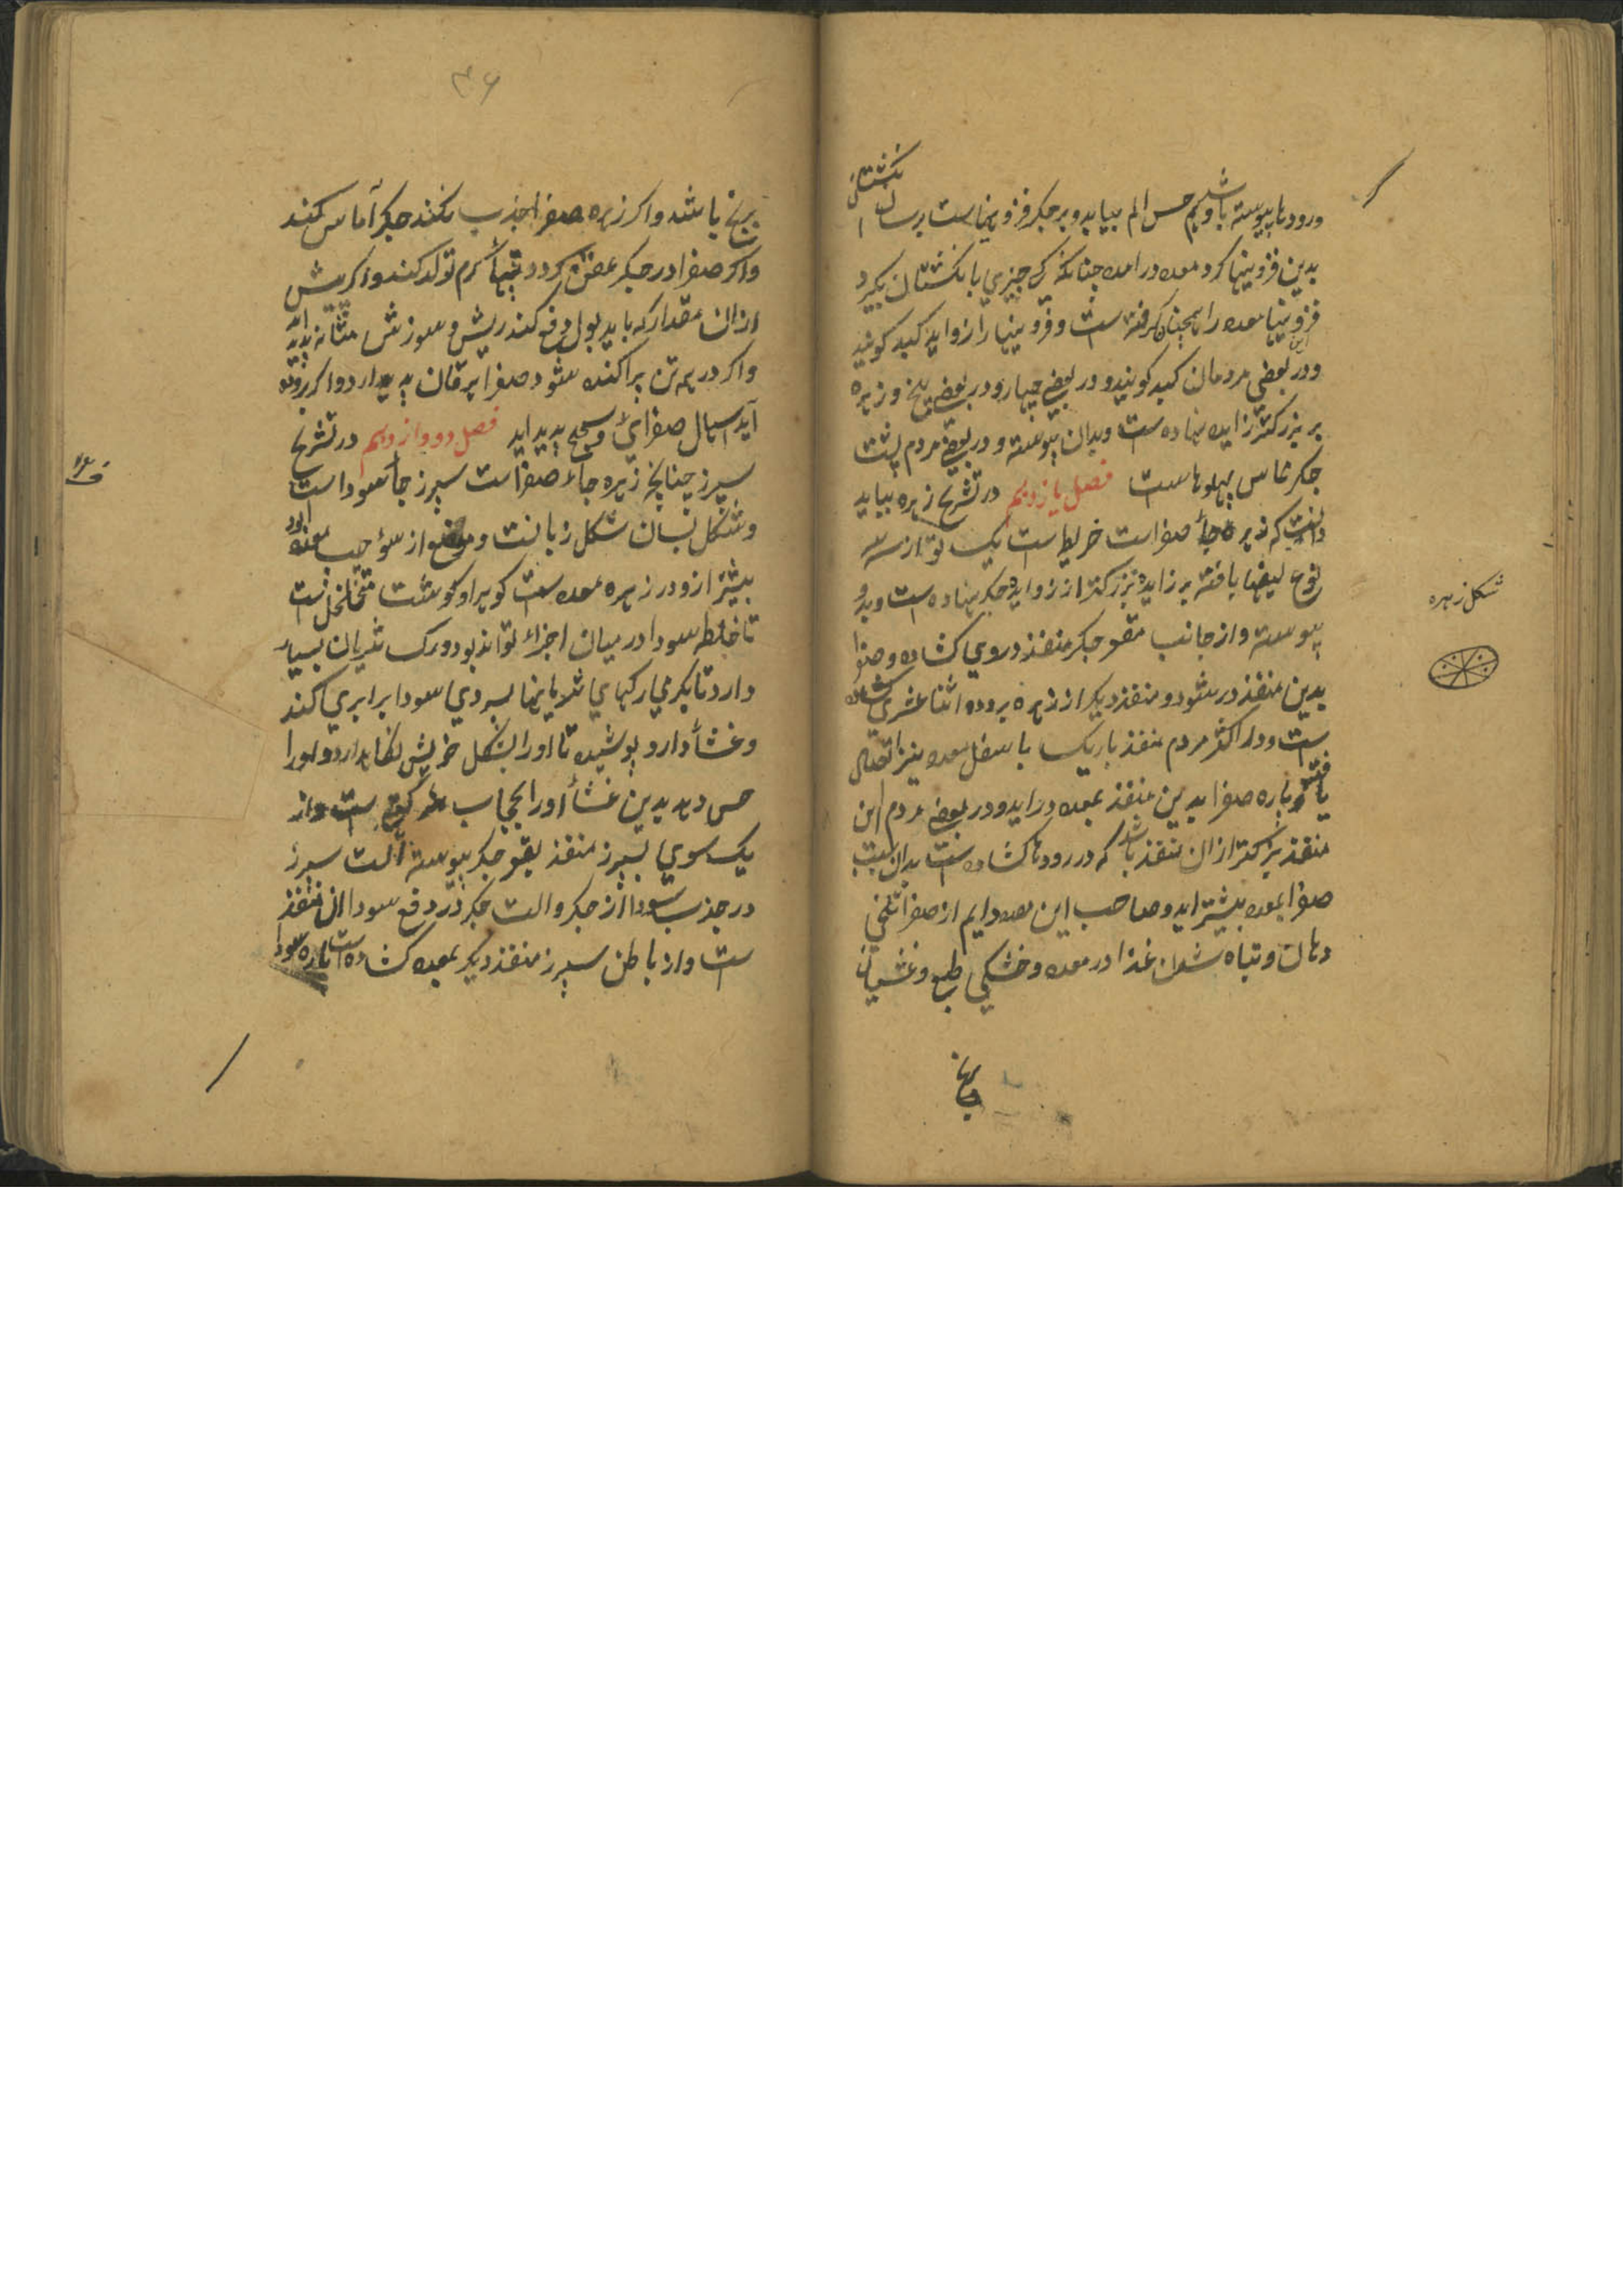 ورودها پیوسته باشد وبکم حس الم بیابد وبر جکر فزونیهاست برسان انکشتان
بدین فزونیها کرد معده درامده چنانکه کی چیزی بانکشتان بکیرد
این فزونیها معده را همچنان کرفته است وفزونیها را زواید کبد کویند
ودر بعضی مردمان کبد کویند ودر بعضی چهار ودر بعضی پنج وزهره
بر بزرکتر زایده نهاده است وبدان پیوسته ودر بعضی مردم پشت
جکر مماس پهلوهاست فصل یازدهم در تشریح زهره بباید
دانست که زهره جاء صفراست خریطه است یک تو از سه
نوع لیفها بافته بر زایده بزرکتر از زواید جکر نهاده است وبدو
پیوسته واز جانب مقعر جکر منفذ دروی کشاده وصفرا
بدین منفذ در شود ومنفذ دیکر از زهره بروده اثنا عشری کشاده
است ودر اکثر مردم منفذ باریک باسفل معده نیز اتصال
یافته وپاره صفرا بدین منفذ بمعده دراید ودر بعضی مردم این
منفذ بزرکتر ازان منفذ باشد که در رودها کشاده است بدان سبب
صفرا بمعده بیشتر اید وصاحب این معده دایم از صفرا تلخی
دهان وتباه شدن غذا در معده وخشکی طبع وغثیان
شکل زهره
۳۶
برنج باشد واکر زهره صفرا جذب نکند جکر آماس کند
واکر صفرا در جکر عفن کردد تبهاء کرم تولد کند واکر بیش
ازان مقدار که باید ببول دفع کند ریش وسوزش مثانه پدید اید
واکر در همه تن پراکنده شود صفرا یرقان پدید ارد واکر بروده
آید اسهال صفرائ وسحج پدید اید فصل دووازدهم در تشریح
سپرز چنانچه زهره جاء صفراست سپرز جاء سوداست
وشکل بسان شکل زبانست وموضع از سوء چپ معده بود
بیشتر ازو در زیر معده است کوهر او کوشتست متخلخل است
تا خلط سودا در میان اجزاء تواند بود ورک شریان بسیار
دارد تا بکرمی رکهای شریانها بسردی سودا برابری کند
وغشاء دارد پوشیده تا اورا بشکل خویش نکاه دارد واورا
حس دهد بدین غشاء اورا بحجاب است واز
یک سوی سپرز منفذ بقعر جکر پیوسته آلت سپرز
در جذب سودا از جکر والت جکر در دفع سودا این منفذ
است واز باطن سپرز منفذ دیکر بمعده کشاده است تا پاره سودا